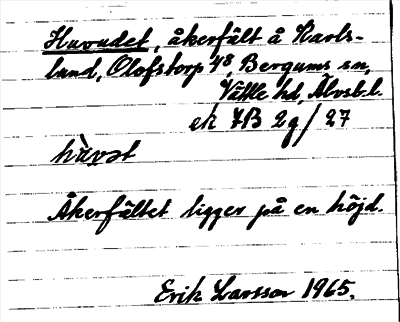 Huvudet, åkerfält å Karls-
lund, Olofstorp 4⁸, Bergums sn,
Vättle hd, Älvsb.l.
ek 7B 2g/27
hùvət
Åkerfältet ligger på en höjd.
Erik Larsson 1965.